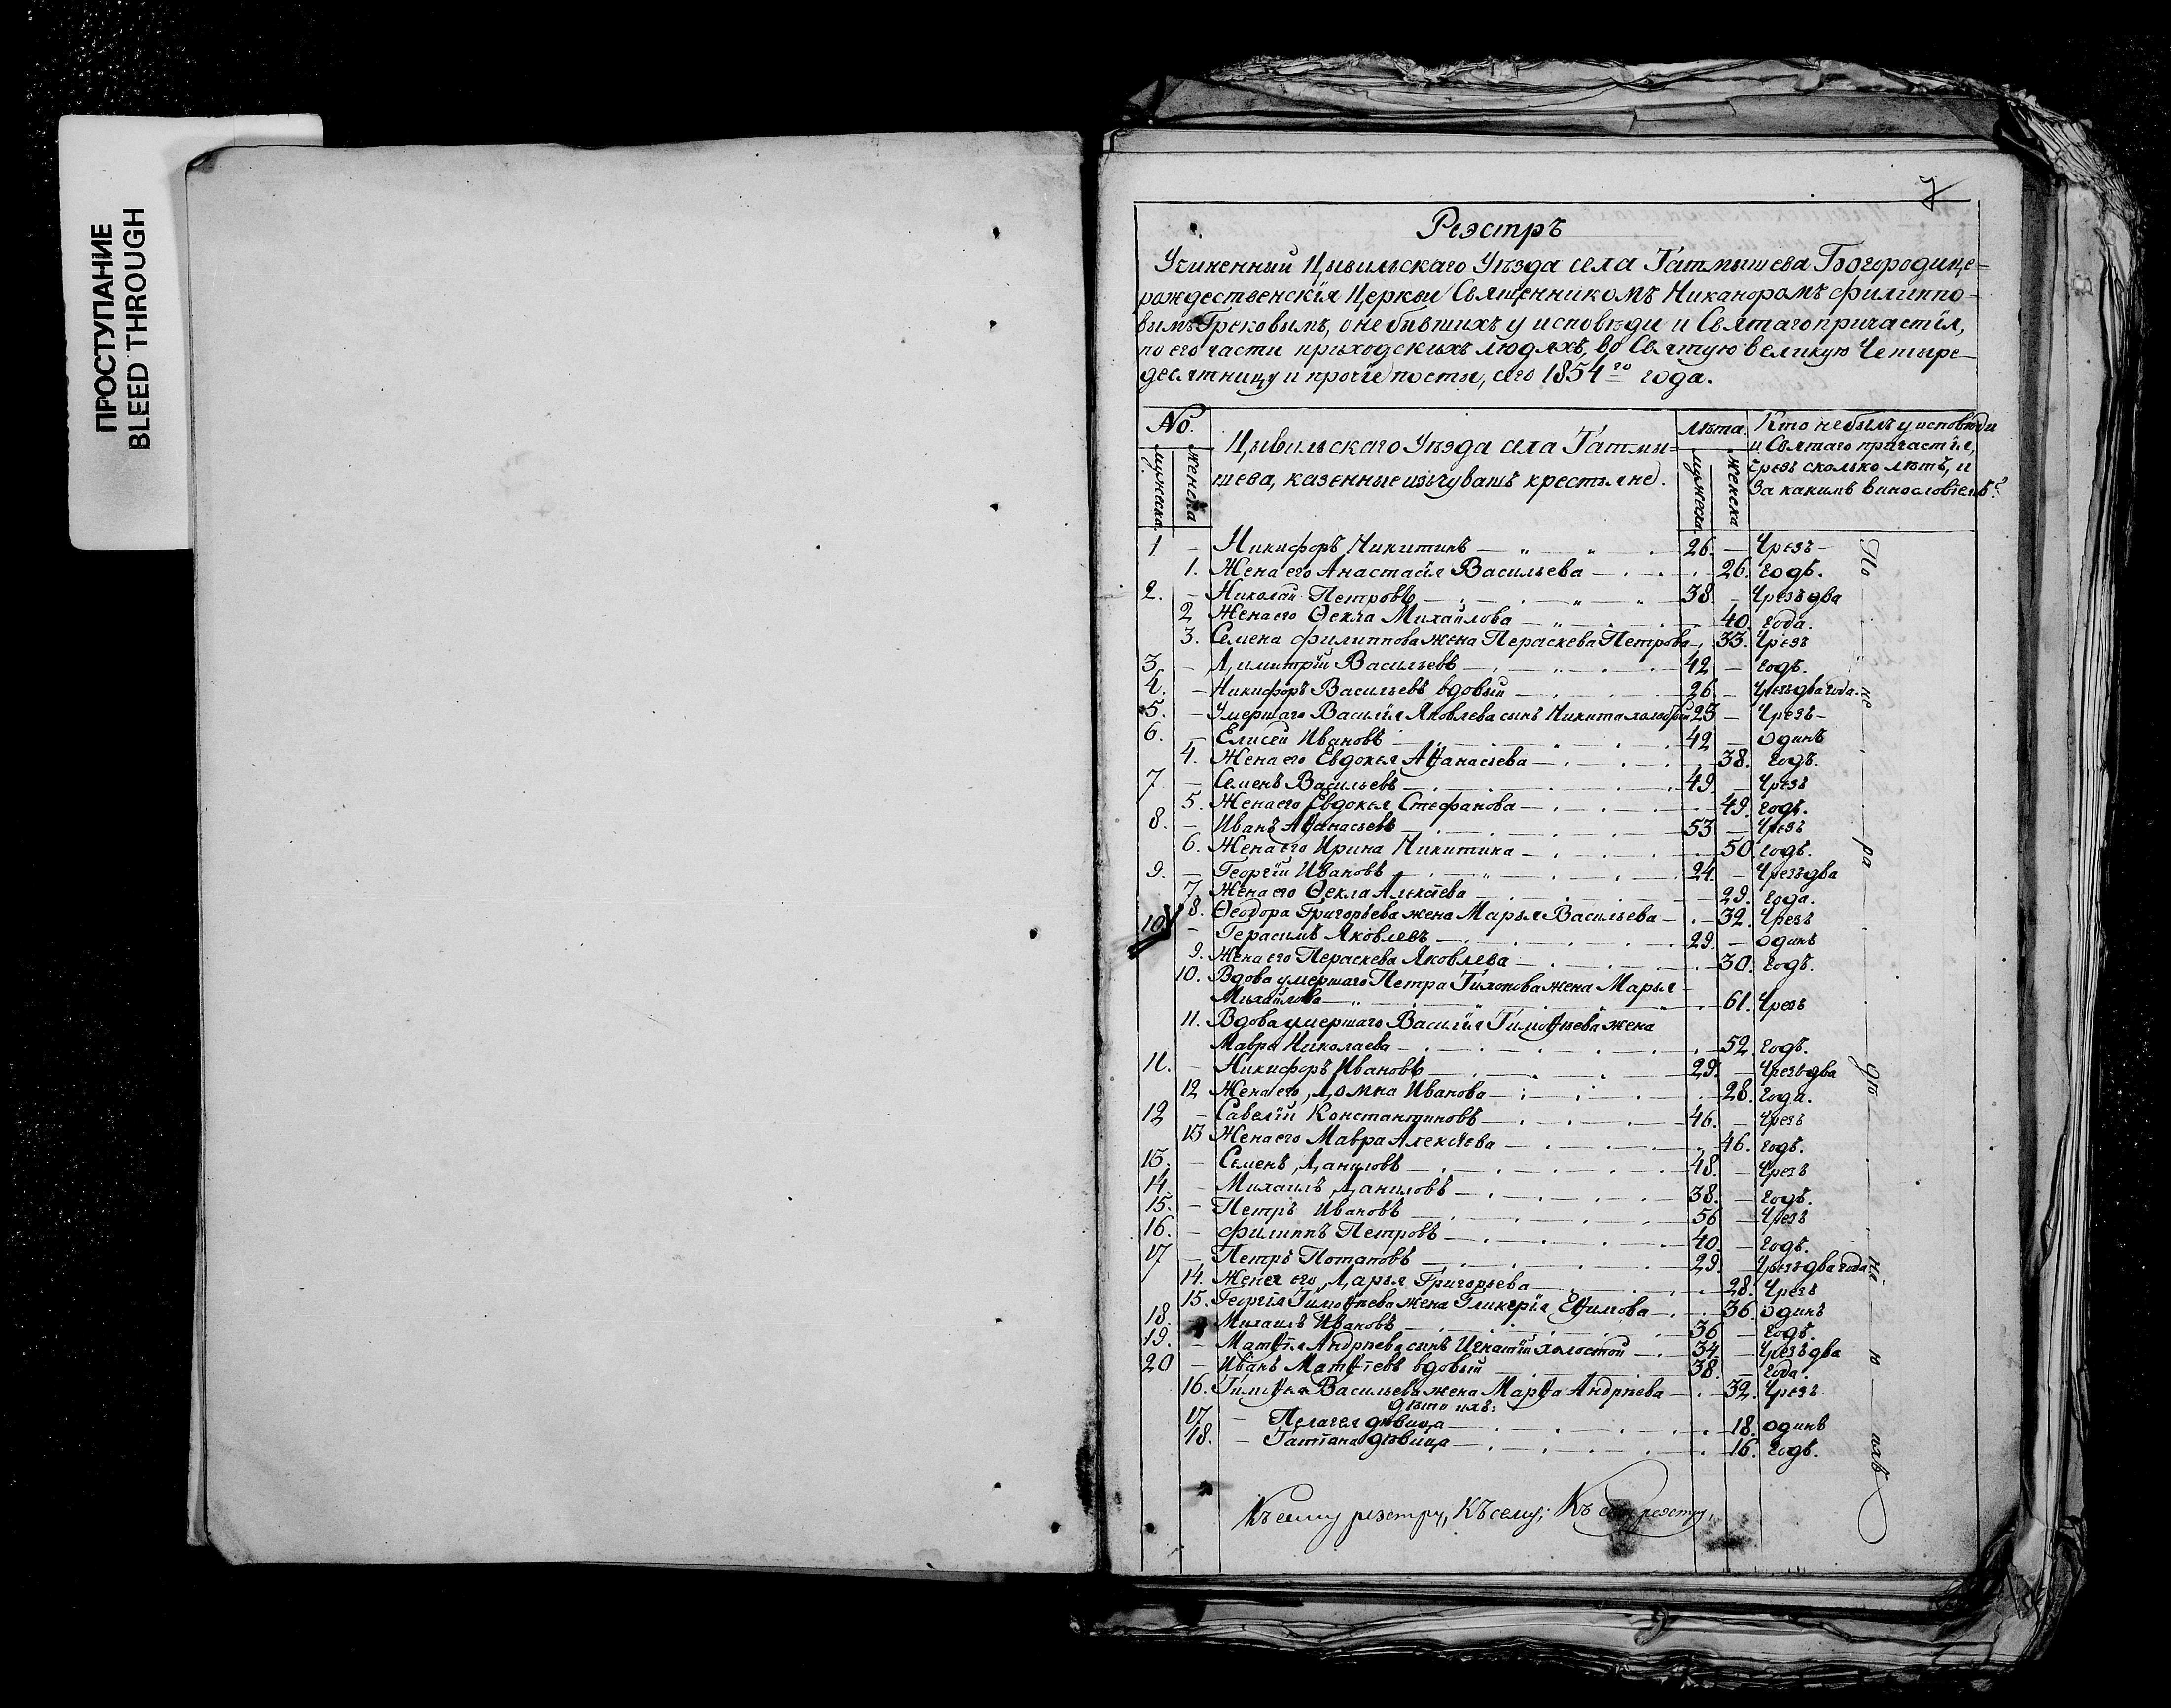 ПРОСТУПАНИЕ
BLEED THROUGH
7
Реэстръ
Учиненный Цывильскаго Уѣзда села Татмышева Богородице=
рождественскія Церкви Священникомъ Никаноромъ Филиппо-
вымъ Грековымъ, о не бывшихъ у исповѣди и Святаго причастія,
по его части приходскихъ людяхъ, во Святую великую Четыре-
десятницу и прочіе посты, сего 1854го года.
No.
мужеска
женска
Цывильскаго Уѣзда села Татмы=
шева, казенные изъ чувашъ крестьяне.
лѣта.
мужеска
женска
Кто не былъ у исповѣди
и Святаго причастія,
чрезъ сколько лѣтъ, и
За какимъ винословіемъ?
1 — Никифоръ Никитинъ — 26. — Чрезъ-
1. Жена его Анастасія Васильева — 26. годъ.
2. — Николай Петровъ — 38 — Чрезъ два
2 Жена его Ѳекла Михайлова — 40. года.
3. Семена Филиппова жена Пераскева Петрова — 33. Чрезъ
3. — Димитрій Васильевъ — 42 — годъ.
4. — Никифоръ Васильевъ вдовый — 26. — Чрезъ два года.
5. — Умершаго Василія Яковлева сынъ Никита холостый 25 — Чрезъ-
6. — Елисей Ивановъ — 42 — одинъ
4. Жена его Евдокья Аѳанасьева — 38. годъ.
7 — Семенъ Васильевъ — 49. — Чрезъ
5. Жена его Евдокья Стефанова — 49. годъ.
8. — Иванъ Аѳанасьевъ — 53 — Чрезъ
6. Жена его Ирина Никитина — 50. годъ.
9. — Георгій Ивановъ — 24. — Чрезъ два
7. Жена его Ѳекла Алексѣева — 29. года.
8. Ѳеодора Григорьева жена Марья Васильева — 32. Чрезъ
10. — Герасимъ Яковлевъ — 29. — одинъ
9. Жена его Пераскева Яковлева — 30. годъ.
10. Вдова умершаго Петра Тихонова жена Марья
Михайлова — 61. Чрезъ
11. Вдова умершаго Василія Тимоѳѣева жена
Мавра Николаева — 52. годъ.
11. — Никифоръ Ивановъ — 29. — Чрезъ два
12 Жена его, Домна Иванова — 28. года.
12 — Савелій Константиновъ — 46. — Чрезъ
13 Жена его Мавра Алексѣева — 46. годъ.
13. — Семенъ Даниловъ — 48. — Чрезъ
14 — Михаилъ Даниловъ — 38. — годъ.
15. — Петръ Ивановъ — 56 — Чрезъ
16. — Филиппъ Петровъ — 40. — годъ.
17 — Петръ Потаповъ — 29. — Чрезъ два года.
14. Жена его, Дарья Григорьева — 28. Чрезъ
15. Георгія Тимоѳѣева жена Гликерія Еѳимова — 36. одинъ
18. Михаилъ Ивановъ — 36 — годъ.
19. — Матѳія Андрѣева сынъ Игнатій холостой — 34. — Чрезъ два
20 — Иванъ Матѳіевъ вдовый — 38. — года.
16. Тимоѳея Васильева жена Марѳа Андрѣева — 32. Чрезъ
дѣти ихъ:
17 — Пелагея дѣвица — 18. одинъ
18. — Татіана дѣвица — 16. годъ.
По не ра дѣ ні ю ихъ
Къ сему реэстру, Къ сему; Къ сему реэстру,